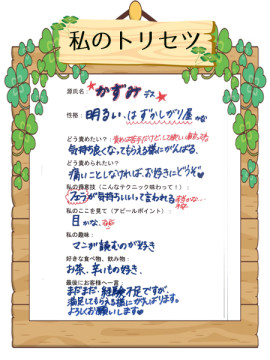 私のトリセツ
源氏名: かずみ デス
性格: 明るい、はずかしがり屋 かな
どう責めたい?: 責めは苦手だけど、して欲しい事言って下さい
気持ち良くなってもらえる様にがんばる。
どう責められたい?
痛いことしなければ、お好きにどうぞ♥
私の得意技(こんなテクニック味わって!):
フェラが気持ちいいって言われる
私のここを見て(アピールポイント):
目かな、
私の趣味:
マンガ読むのが好き
好きな食べ物、飲み物:
お茶、辛いもの好き、
最後にお客様へ一言:
まだまだ、経験不足ですが、
満足してもらえる様にがんばります。
よろしくお願いします♥